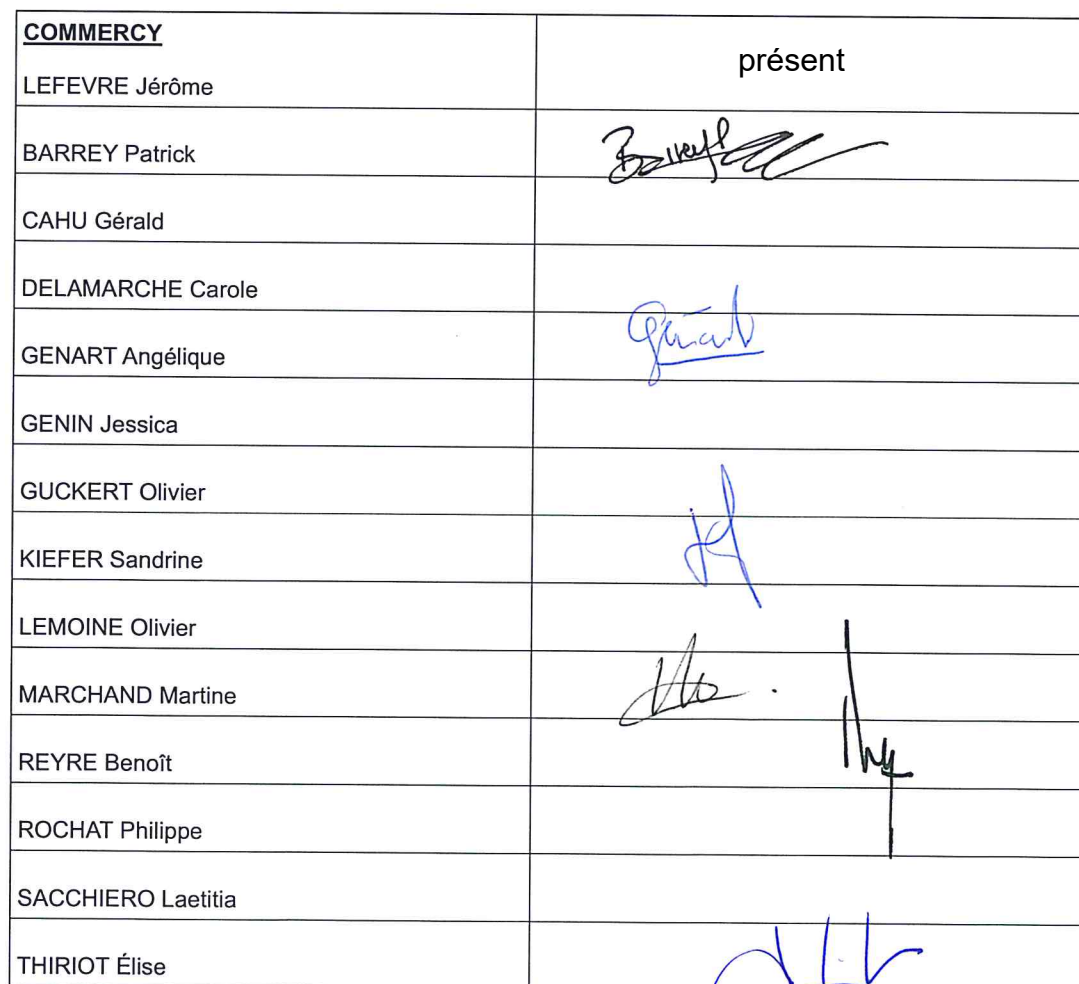 COMMERCY
LEFEVRE Jérôme
présent
BARREY Patrick
Barrey
CAHU Gérald
DELAMARCHE Carole
GENART Angélique
Genart
GENIN Jessica
GUCKERT Olivier
KIEFER Sandrine
LEMOINE Olivier
MARCHAND Martine
REYRE Benoît
ROCHAT Philippe
SACCHIERO Laetitia
THIRIOT Élise